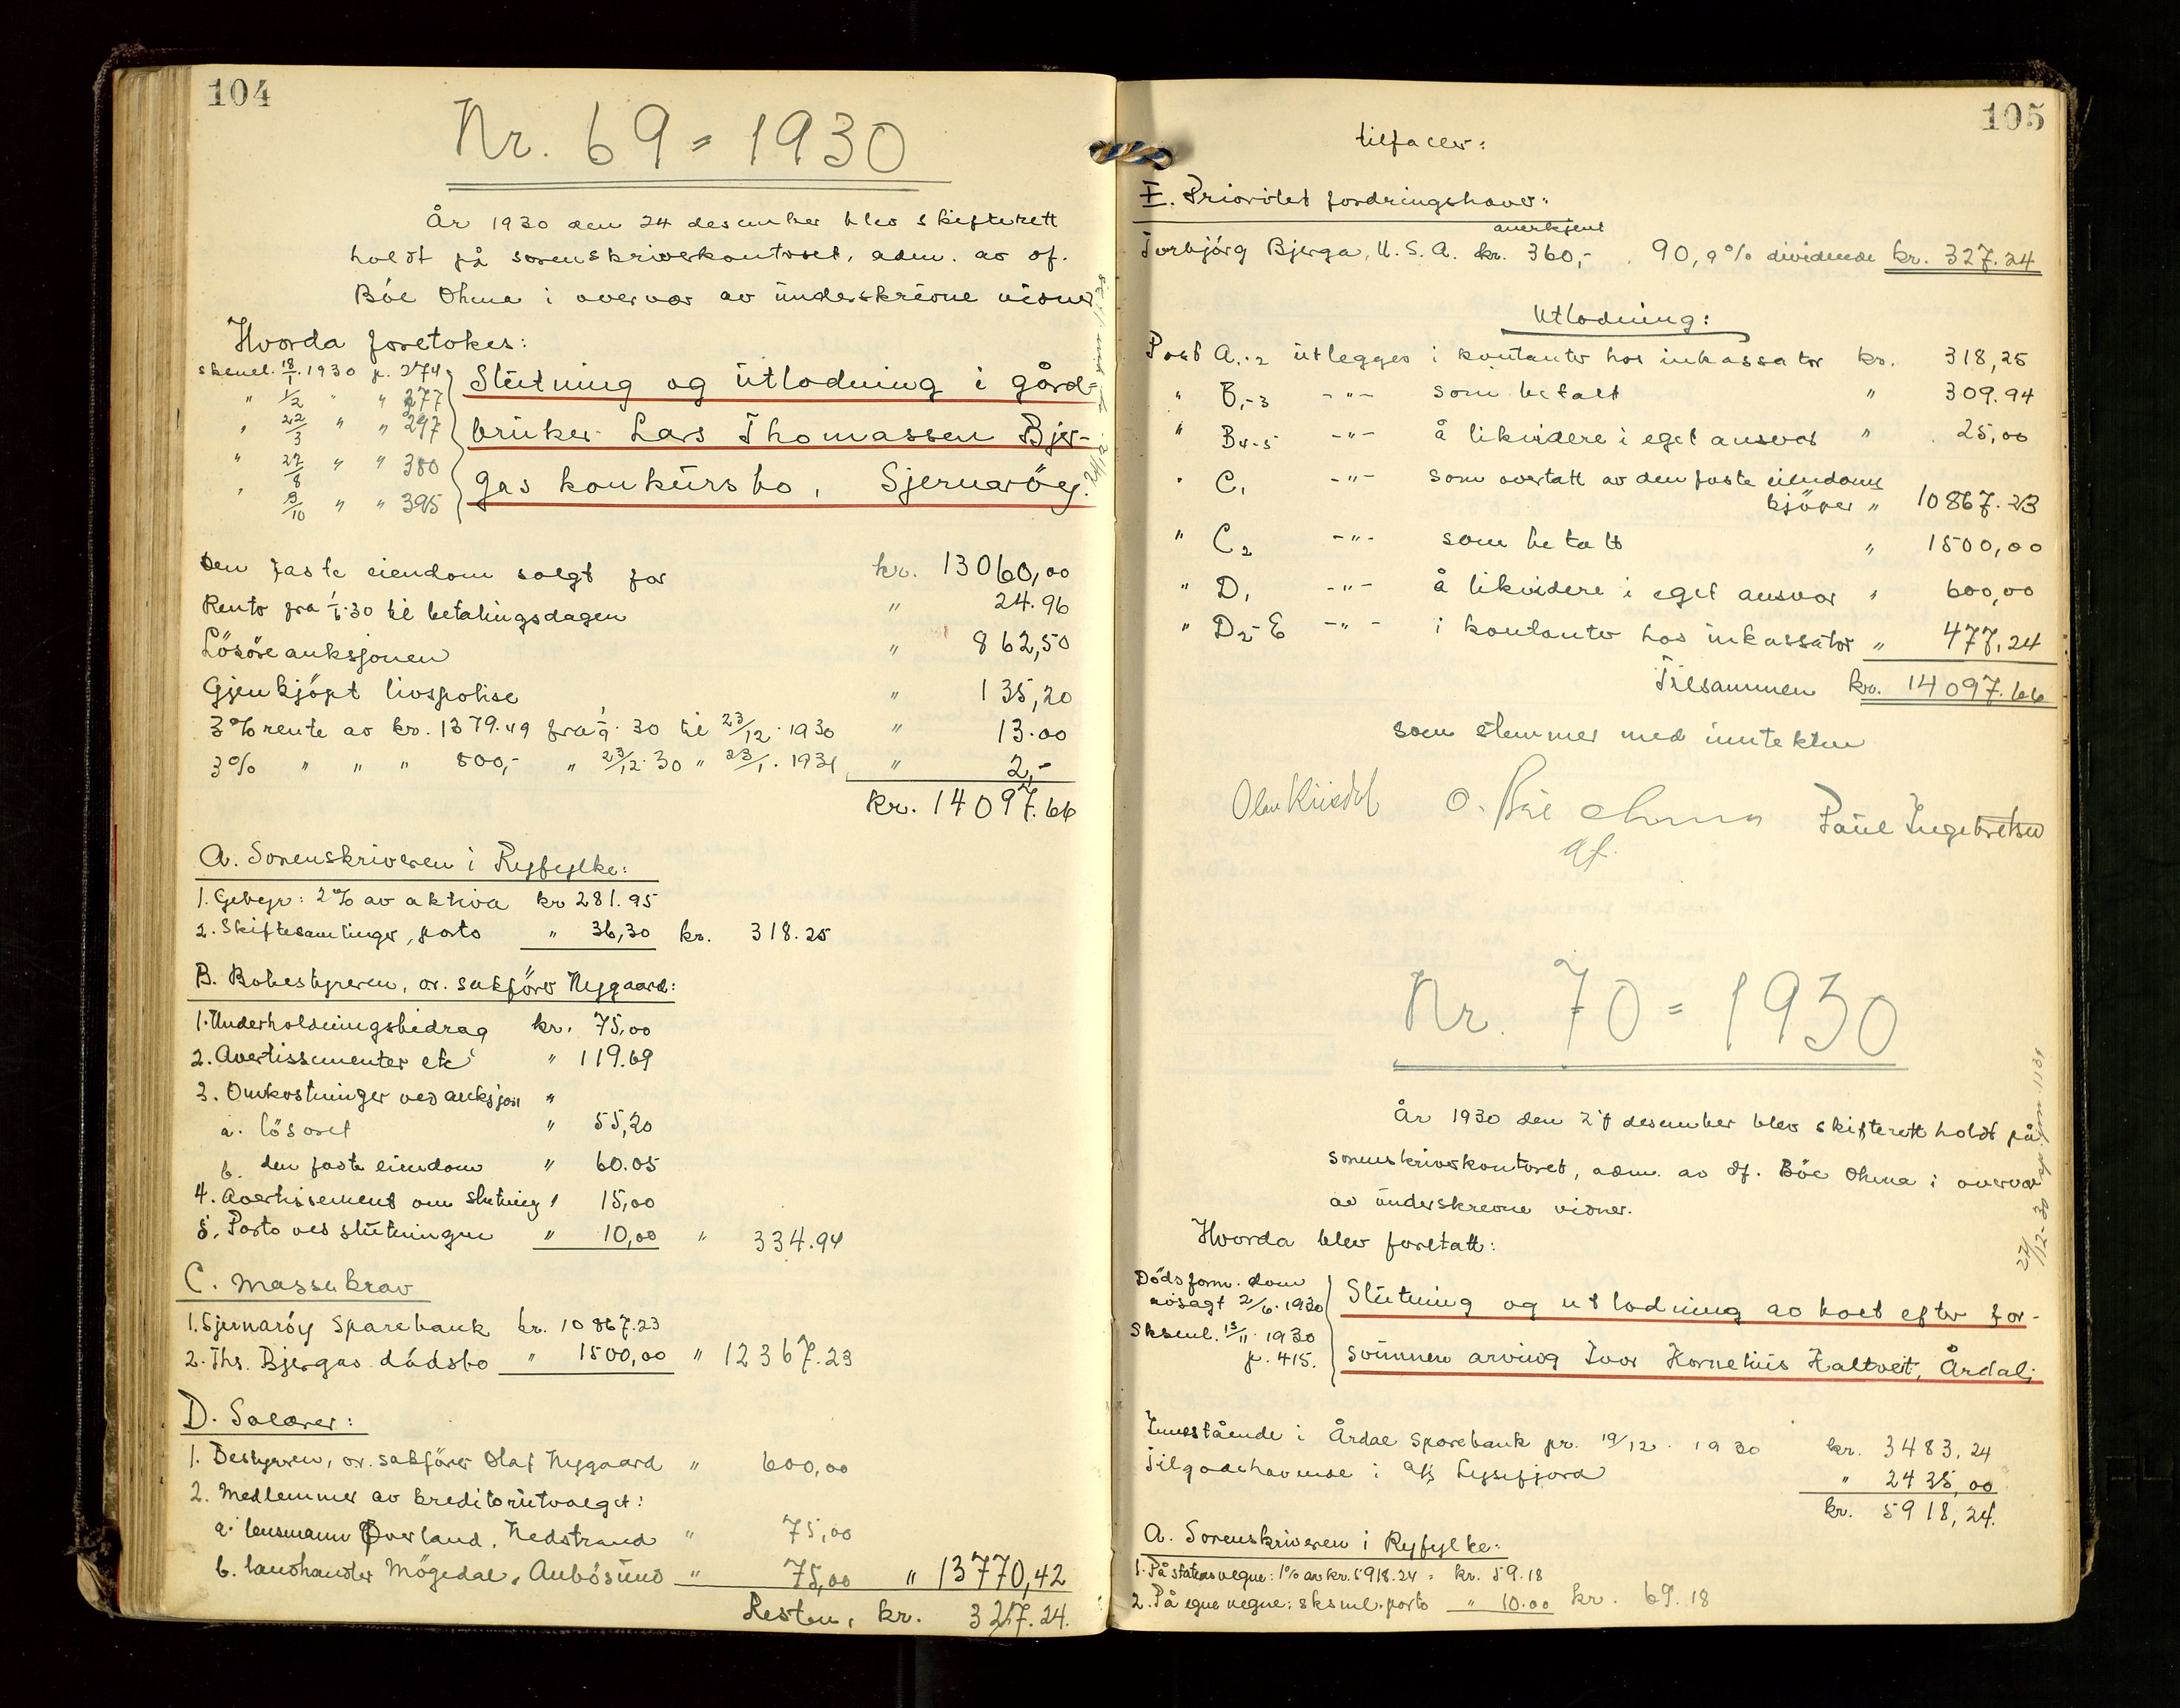 104
Nr. 69 = 1930
År 1930 den 24 desember blev skifterett
holdt på sorenskriverkontoret, adm. av df.
Böe Ohma i overvær av underskrevne vidner
Hvorda foretokes:
sksml. 18/1. 1930 p. 274
" 1/2 " " 277
" 22/3 " " 297
" 27/8 " " 380
" 9/10 " " 395
Slutning og utlodning i gård-
bruker Lars Thomassen Bjer-
gas konkursbo, Sjernaröy.
Den faste eiendom solgt for kr. 13060,00
Rente fra 1/6.30 til betalingsdagen " 24.96
Lösöreauksjonen " 862,50
Gjenkjöpt livspolise " 135,20
3% rente av kr. 1379.49 fra 1/9. 30 til 23/12. 1930 " 13.00
3% " " " 800,- " 23/12. 30 " 23/1. 1931 " 2,-
kr. 14097.66
A. Sorenskriveren i Ryfylke:
1. Gebyr: 2% av aktiva kr 281.95
2. Skiftesamlinger, porto " 36,30 kr. 318.25
B. Bobestyreren, or. sakförer Nygaard:
1. Underholdningsbidrag kr. 75,00
2. Avertissementer etc " 119.69
3. Omkostninger ved auksjon "
a. lösöret " 55,20
b. den faste eiendom " 60.05
4. Avertissement om slutning " 15,00
5. Porto ved slutningen " 10,00 " 334.94
C. Massekrav
1. Sjernaröy Sparebank kr. 10867.23
2. Ths. Bjergas dödsbo " 1500,00 " 12367.23
D. Salærer:
1. Bestyreren, or. sakförer Olaf Nygaard " 600,00
2. Medlemmer av kreditorutvalget:
a. lensmann Överland, Nedstrand " 75,00
b. landhandler Mögedal, Aubösund " 75,00 " 13770,42
Resten, kr. 327.24.
105
tilfaller:
E. Prioritet fordringshaver:
anerkjent
Torbjörg Bjerga, U.S.A. kr. 360,- 90,9% dividende kr. 327.24
Utlodning:
Post A1-2 utlegges i kontanter hos inkassator kr. 318,25
" B1-3 -"- som betalt " 309.94
" B4-5 -"- å likvidere i eget ansvar " 25,00
" C1 -"- som overtatt av den faste eiendoms
kjöper " 10867.23
" C2 -"- som betalt " 1500,00
" D1 -"- å likvidere i eget ansvar " 600,00
" D2-E -"- i kontanter hos inkassator " 477,24
Tilsammen kr. 14097.66
som stemmer med inntekten
O. Böe Ohma
df.
Paul Ingebretsen
Nr. 70 = 1930
År 1930 den 27 desember blev skifterett holdt på
sorenskriverkontoret, adm. av df. Böe Ohma i overvær
av underskrevne vidner.
Hvorda blev foretatt:
Dödsform. dom
avsagt 2/6. 1930
Sksml. 13/11. 1930
p. 415.
Slutning og utlodning av boet efter for-
svunnen arving Ivar Kornelius Haltveit, Årdal;
Innestående i Årdal Sparebank pr. 19/12. 1930 kr. 3483,24
Tilgodehavende i a/s Lysefjord " 2435,00
kr. 5918,24.
A. Sorenskriveren i Ryfylke:
1. På statens vegne: 1% av kr. 5918.24 = kr. 59.18
2. På egne vegne: sksml. porto " 10.00 kr. 69.18